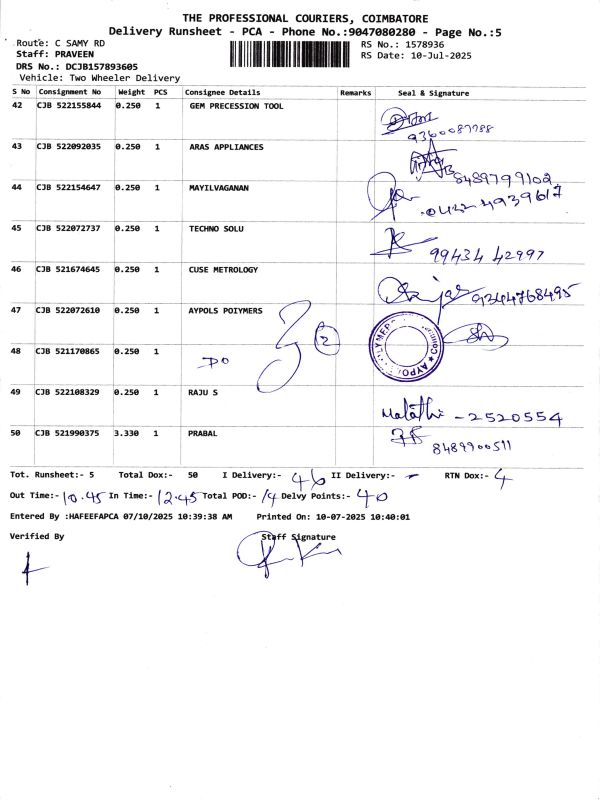 THE PROFESSIONAL COURIERS, COIMBATORE
Delivery Runsheet - PCA - Phone No.:9047080280 - Page No.:5
Route: C SAMY RD RS No.: 1578936
Staff: PRAVEEN RS Date: 10-Jul-2025
DRS No.: DCJB157893605
Vehicle: Two Wheeler Delivery
S No Consignment No Weight PCS Consignee Details Remarks Seal & Signature
42 CJB 522155844 0.250 1 GEM PRECESSION TOOL
9360087788
43 CJB 522092035 0.250 1 ARAS APPLIANCES
8489799102
44 CJB 522154647 0.250 1 MAYILVAGANAN
0422 4939617
45 CJB 522072737 0.250 1 TECHNO SOLU
99434 42997
46 CJB 521674645 0.250 1 CUSE METROLOGY
9344768495
47 CJB 522072610 0.250 1 AYPOLS POIYMERS
2
48 CJB 521170865 0.250 1 DO
49 CJB 522108329 0.250 1 RAJU S
Malathi - 2520554
50 CJB 521990375 3.330 1 PRABAL
8489900511
Tot. Runsheet:- 5 Total Dox:- 50 I Delivery:- 46 II Delivery:- - RTN Dox:- 4
Out Time:- 10.45 In Time:- 12.45 Total POD:- 14 Delvy Points:- 40
Entered By :HAFEEFAPCA 07/10/2025 10:39:38 AM Printed On: 10-07-2025 10:40:01
Verified By Staff Signature